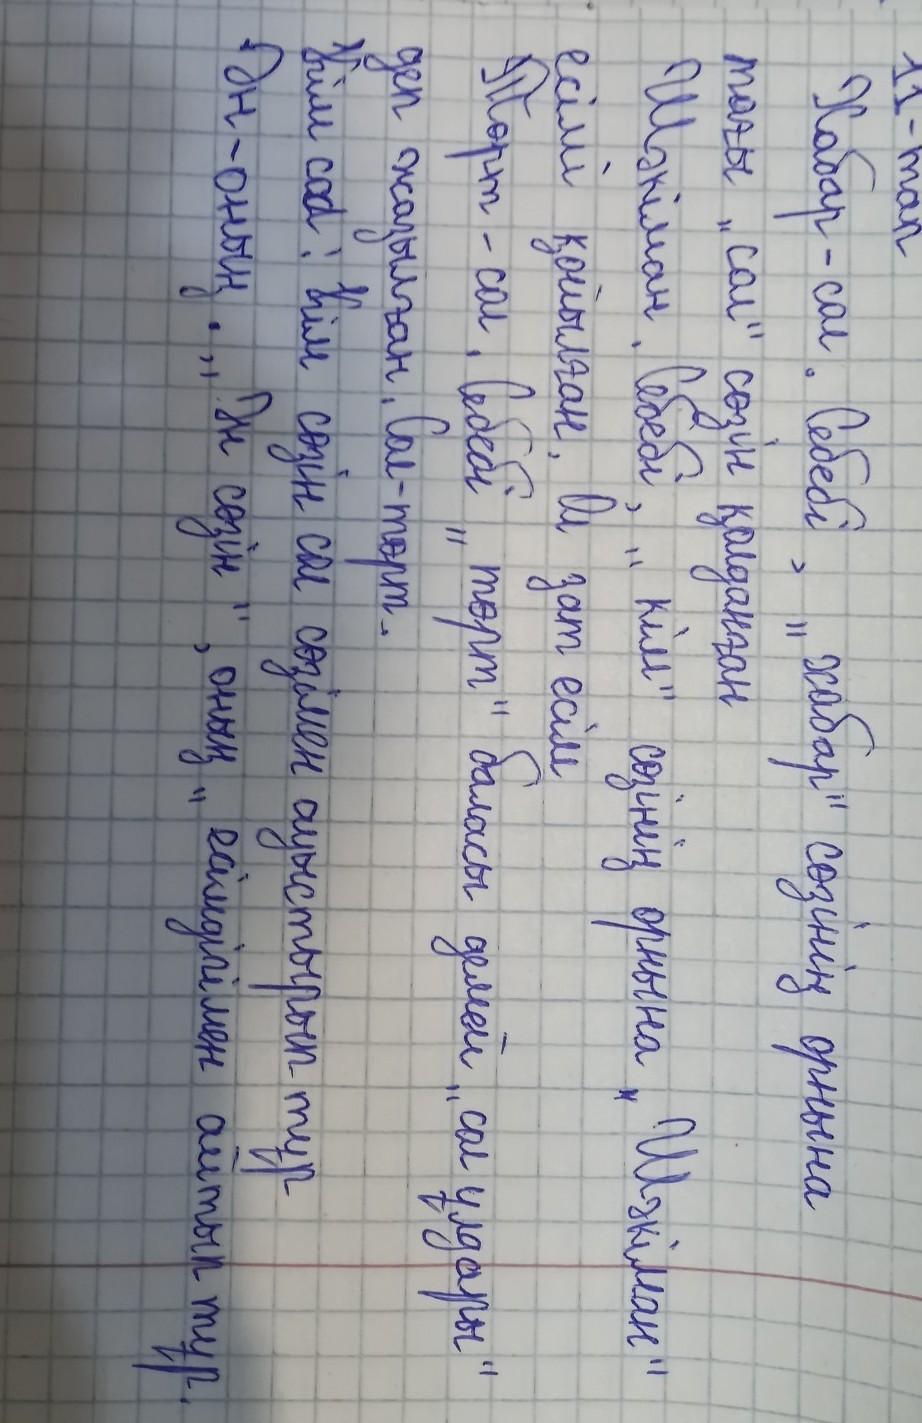 11-тап
Хабар-сол. Себебі, "хабар" сөзінің орнына
тағы "сол" сөзін қолданған
Шәкіман. Себебі, "кім" сөзінің орнына "Шәкіман"
есімі қойылған. Ол зат есім
Төрт-сол. Себебі "төрт" баласы демей "сол ұлдары"
деп жазылған. Сол-төрт.
Кім сол: Кім сөзін сол сөзімен ауыстырып тұр
Ән-оның. "Ән сөзін", оның" есімдігімен айтып тұр.